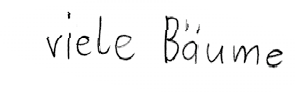 viele Bäume